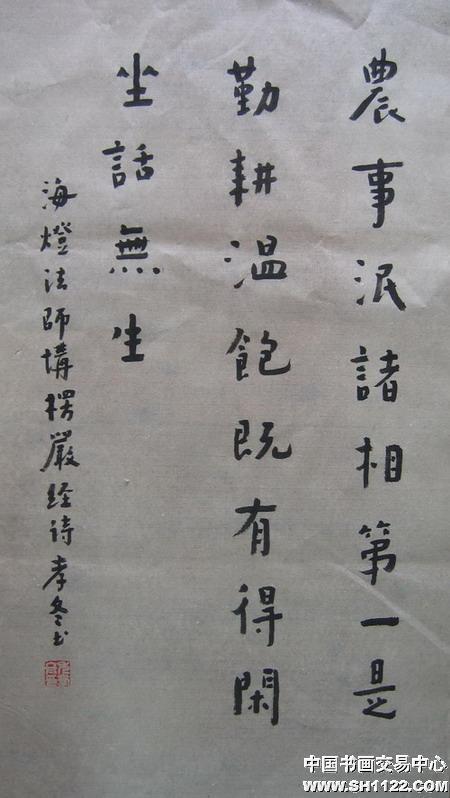 農事泯諸相第一是
勤耕温飽既有得閑
坐話無生
海燈法師講楞嚴经诗孝冬书
中国书画交易中心
www.SH1122.com